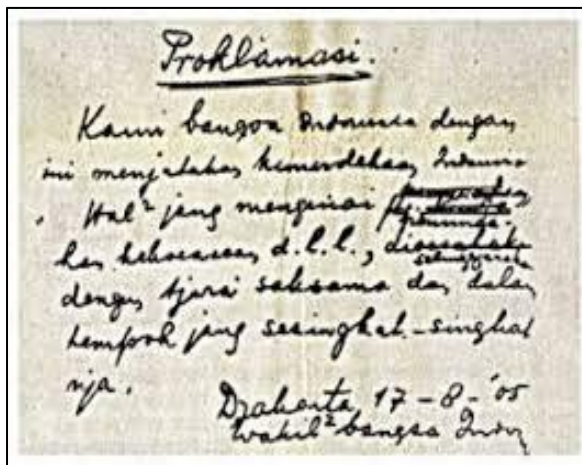 Proklamasi.
Kami bangsa Indonesia dengan
ini menjatakan kemerdekaan Indonesia
. Hal² jang mengenai
kan kekoeasaan d.l.l., dioesahakan
selenggarakan
dengan tjara saksama dan dalam
tempoh jang sesingkat-singkat
nja.
Djakarta, 17 - 8 - '05
Wakil² bangsa Indon